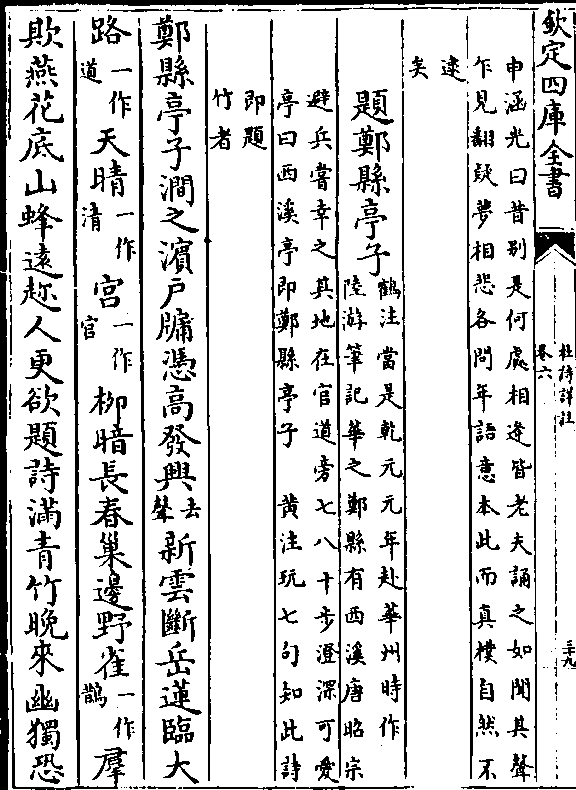 欽定四庫全書
杜詩詳註
卷六
三十九
申涵光曰昔别是何處相逢皆老夫誦之如聞其聲
乍見翻疑夢相悲各問年語意本此而真樸自然不
逮
矣
題鄭縣亭子
鶴注當是乾元元年赴華州時作
陸游筆記華之鄭縣有西溪唐昭宗
避兵嘗幸之其地在官道旁七八十步澄深可愛
亭曰西溪亭即鄭縣亭子 黄注玩七句知此詩
即題
竹者
鄭縣亭子澗之濱户牖憑高發興去聲新雲斷岳蓮臨大
路一作道天晴一作清宫一作官柳暗長春巢邊野雀一作鵲羣
欺燕花底山蜂遠趂人更欲題詩滿青竹晚來幽獨恐